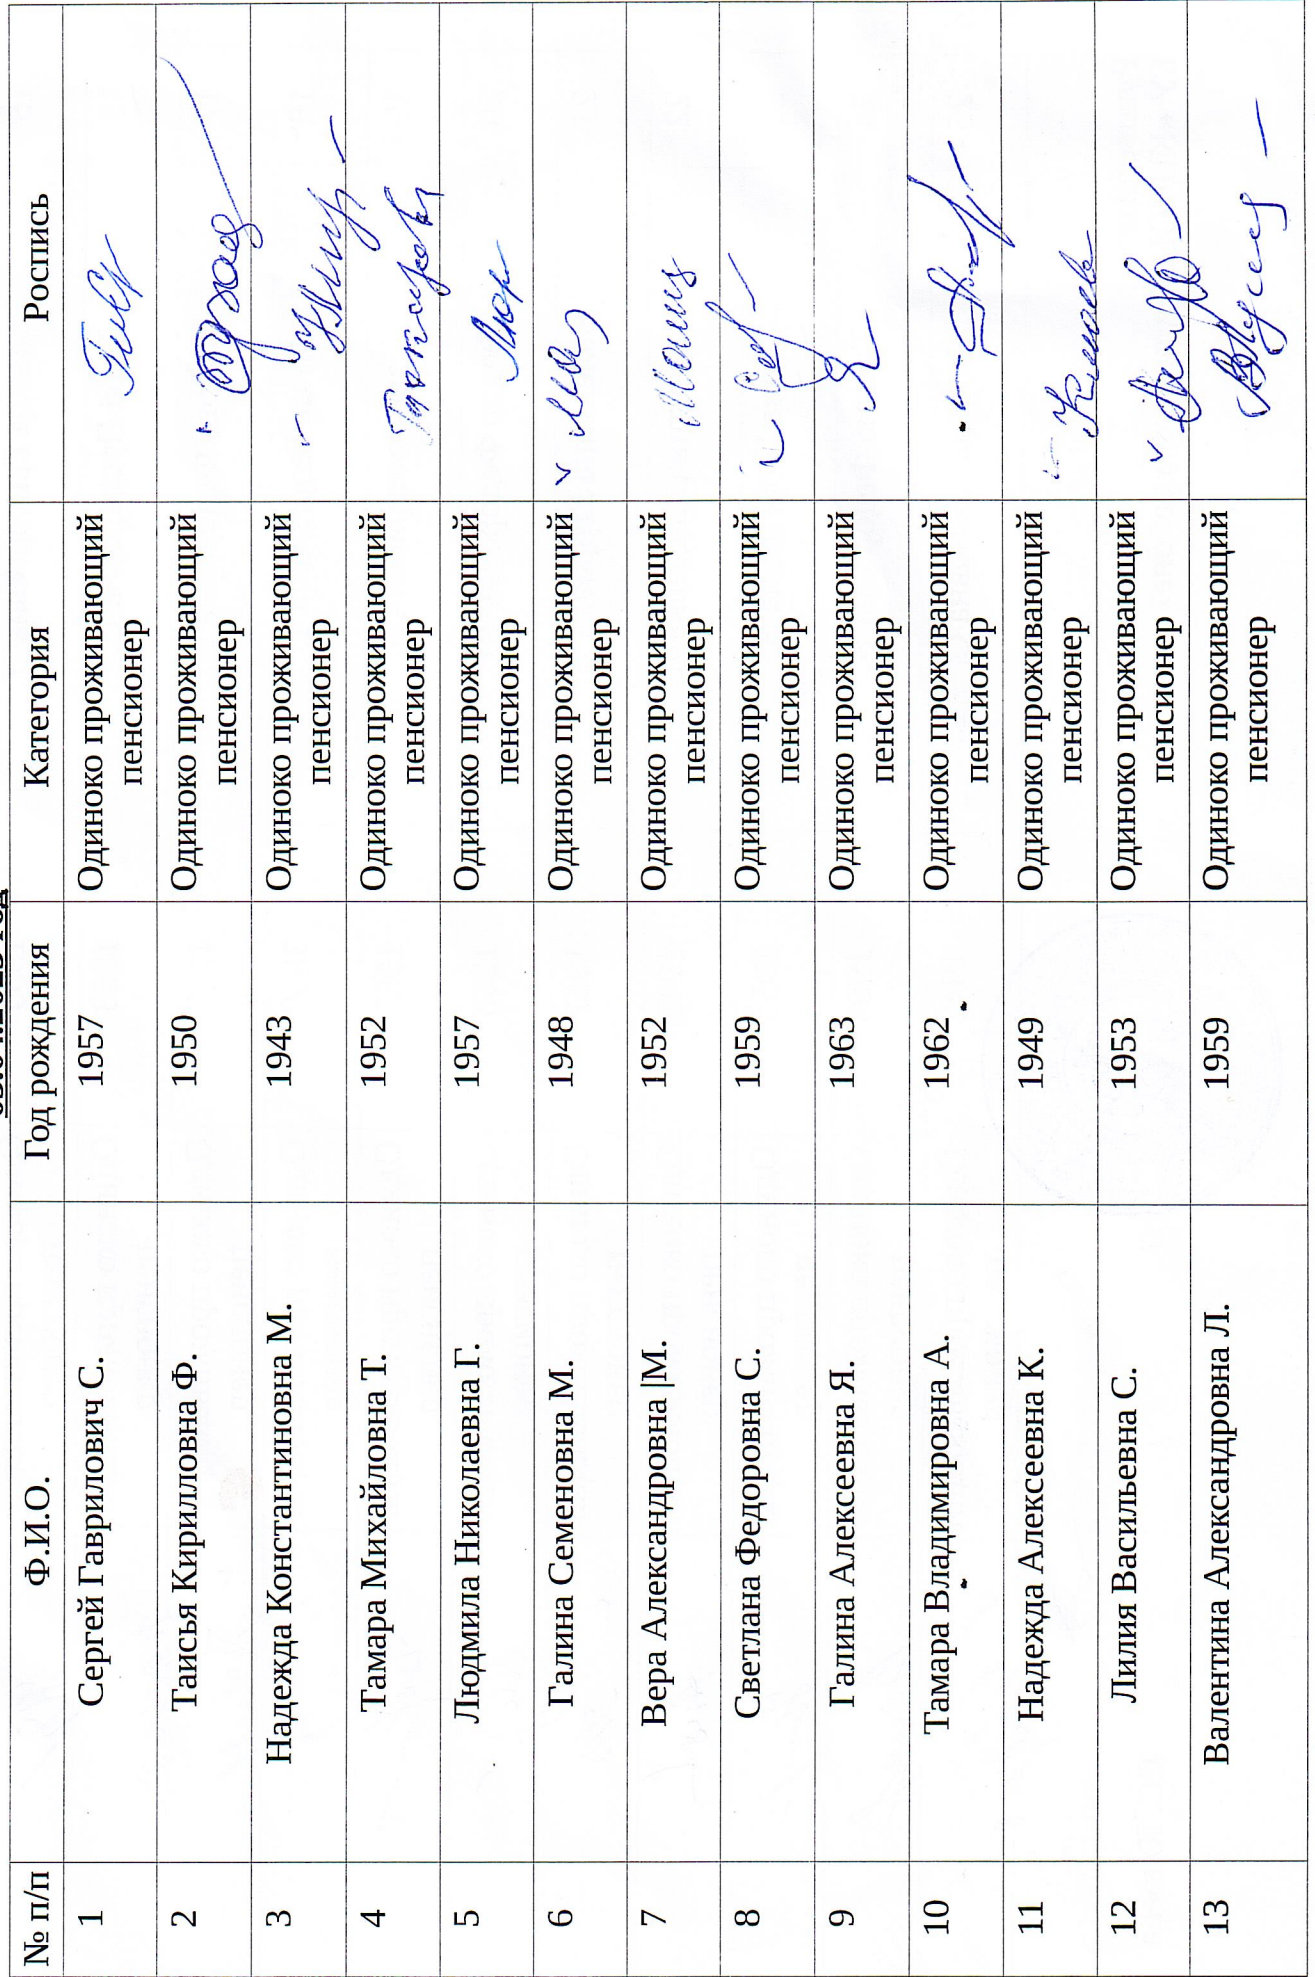 № п/п Ф.И.О. Год рождения Категория Роспись
1 Сергей Гаврилович С. 1957 Одиноко проживающий
пенсионер
2 Таисья Кирилловна Ф. 1950 Одиноко проживающий
пенсионер
3 Надежда Константиновна М. 1943 Одиноко проживающий
пенсионер
4 Тамара Михайловна Т. 1952 Одиноко проживающий
пенсионер
5 Людмила Николаевна Г. 1957 Одиноко проживающий
пенсионер
6 Галина Семеновна М. 1948 Одиноко проживающий
пенсионер
7 Вера Александровна |М. 1952 Одиноко проживающий
пенсионер
8 Светлана Федоровна С. 1959 Одиноко проживающий
пенсионер
9 Галина Алексеевна Я. 1963 Одиноко проживающий
пенсионер
10 Тамара Владимировна А. 1962 Одиноко проживающий
пенсионер
11 Надежда Алексеевна К. 1949 Одиноко проживающий
пенсионер
12 Лилия Васильевна С. 1953 Одиноко проживающий
пенсионер
13 Валентина Александровна Л. 1959 Одиноко проживающий
пенсионер